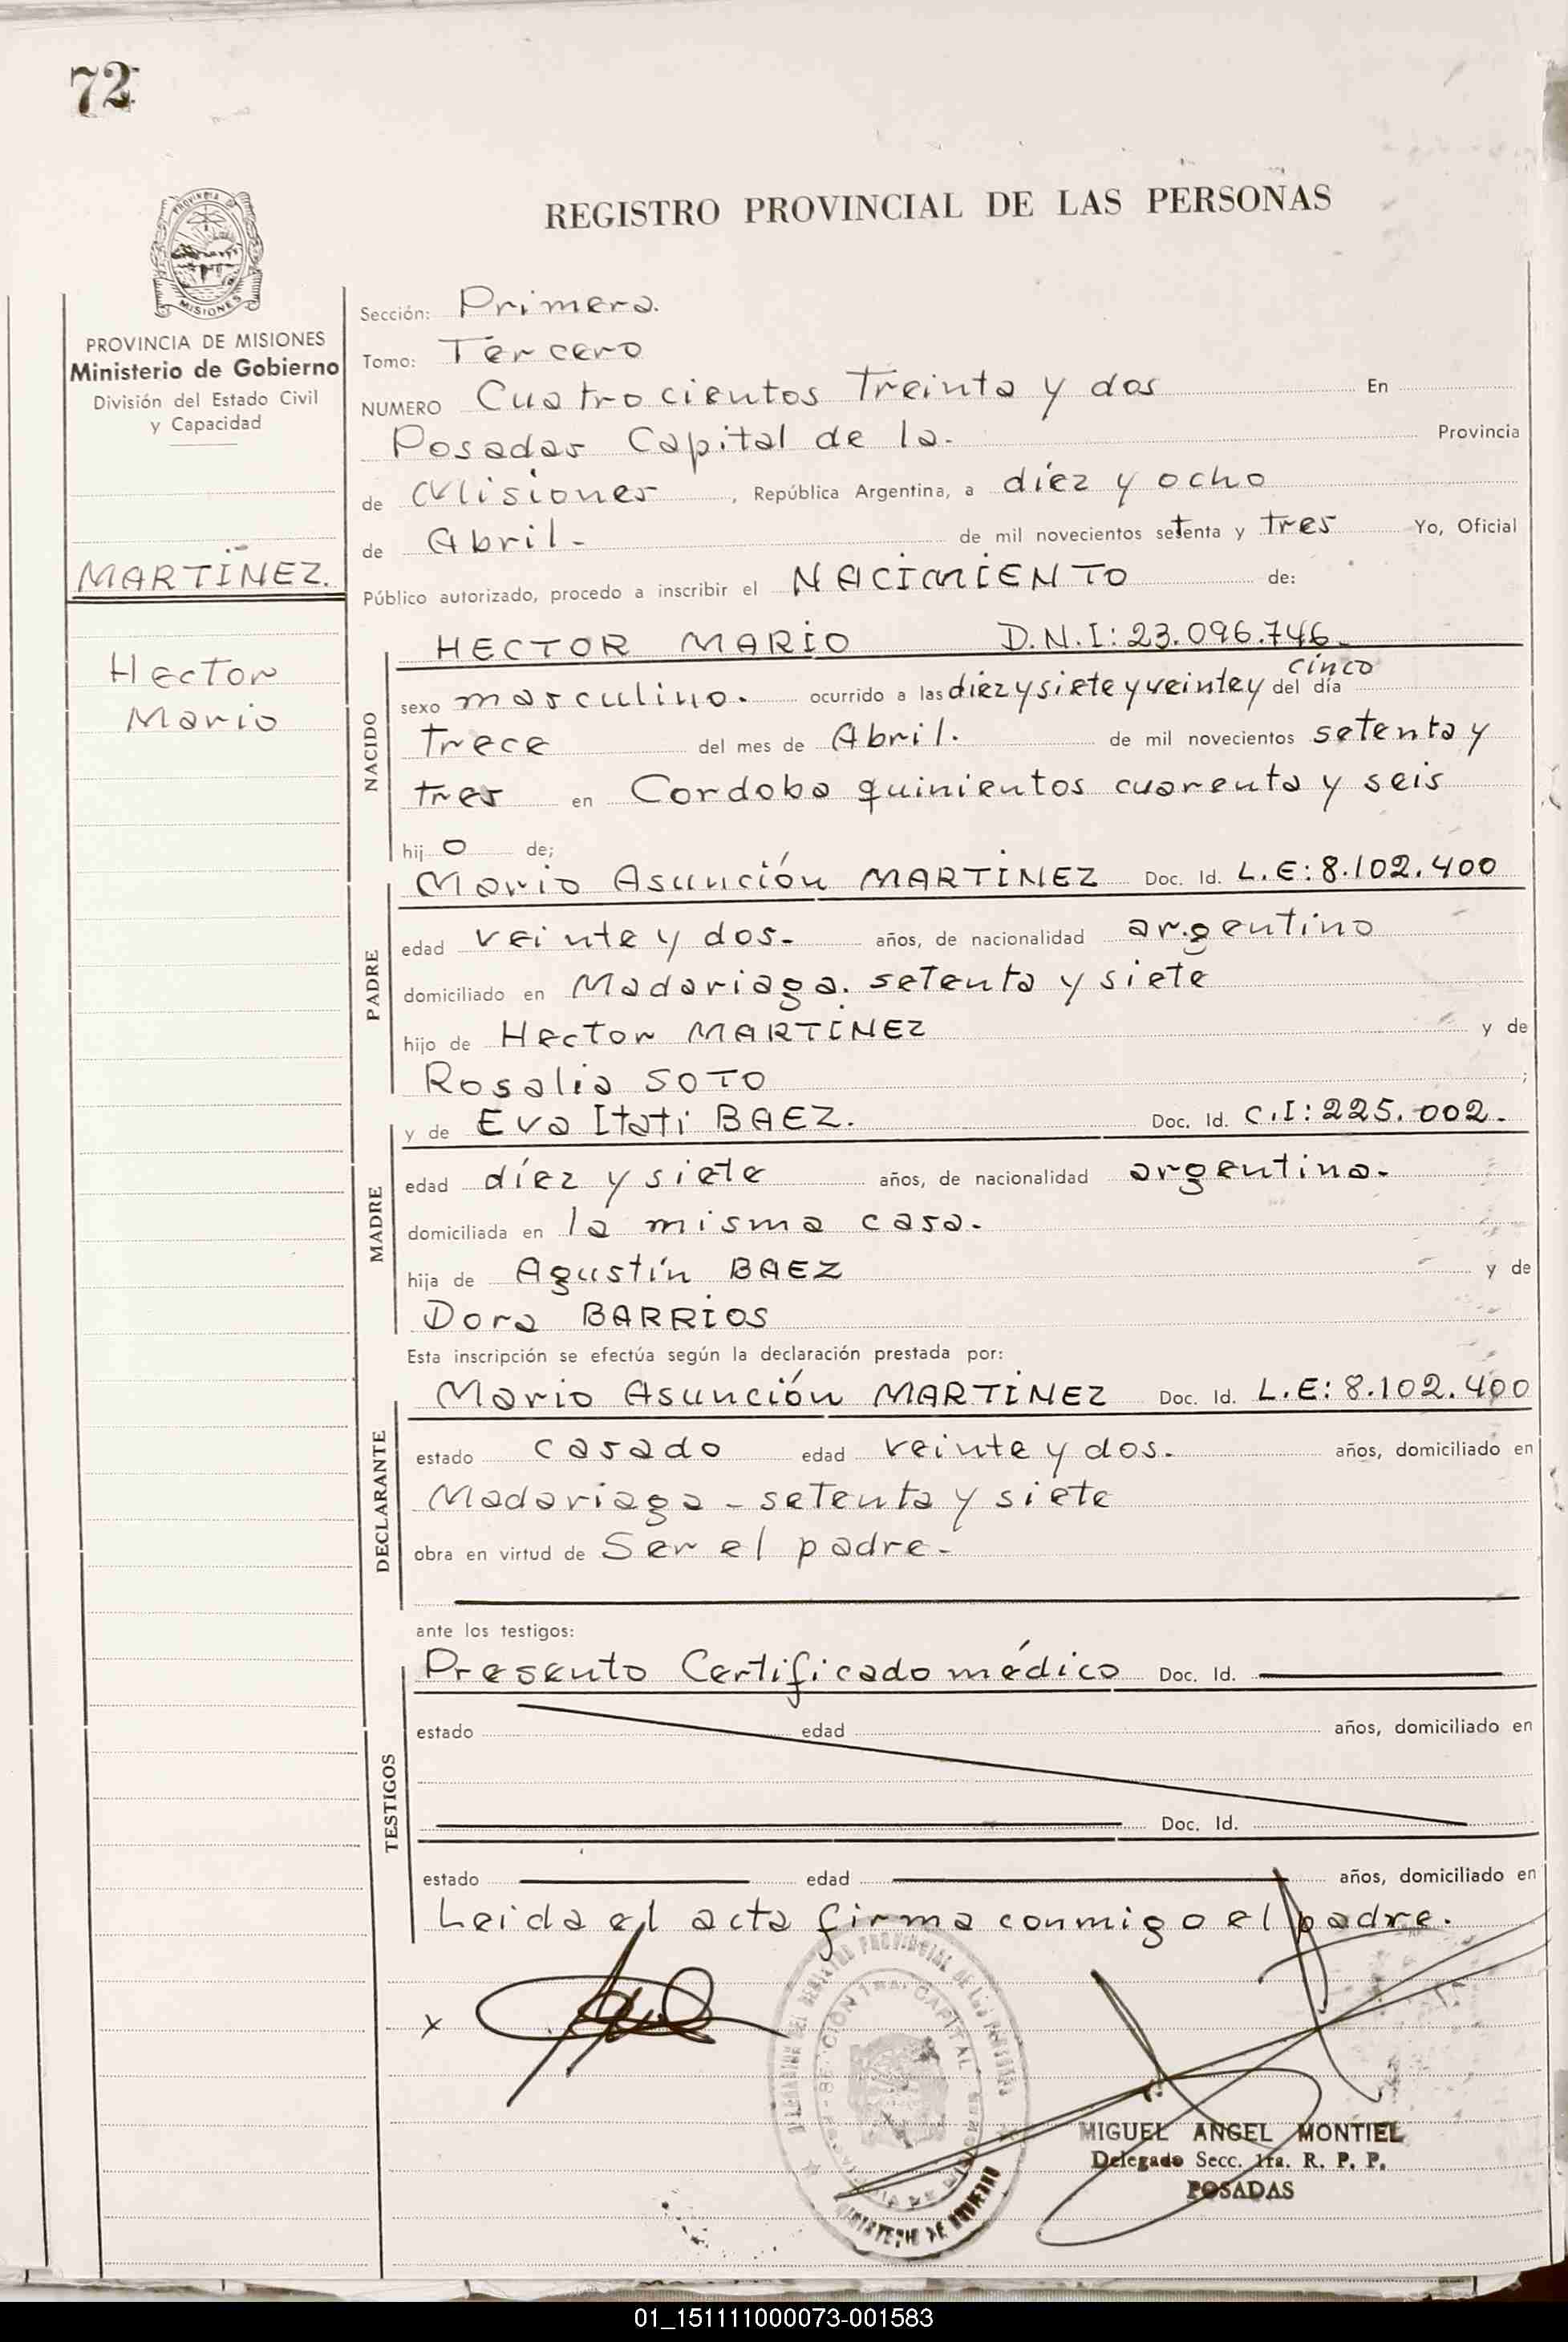 72
REGISTRO PROVINCIAL DE LAS PERSONAS
PROVINCIA DE
MISIONES
PROVINCIA DE MISIONES
Ministerio de Gobierno
División del Estado Civil
y Capacidad
MARTÍNEZ.
Hector
Mario
Sección: Primera.
Tomo: Tercero
NUMERO Cuatrocientos Treinta y dos En
Posadas Capital de la. Provincia
de Misiones, República Argentina, a diez y ocho
de Abril.- de mil novecientos setenta y tres Yo, Oficial
Público autorizado, procedo a inscribir el NACIMIENTO de:
NACIDO
HECTOR MARIO D.N.I:23.096.746.
cinco
sexo masculino. ocurrido a las diez y siete y veinte y del día
trece del mes de Abril. de mil novecientos setenta y
tres en Cordoba quinientos cuarenta y seis
hijo de;
PADRE
Mario Asunción MARTINEZ Doc. Id. L.E:8.102.400
edad veinte y dos.- años, de nacionalidad argentino
domiciliado en Madariaga. setenta y siete
hijo de Hector MARTÍNEZ y de
Rosalia SOTO ;
MADRE
y de Eva Itati BAEZ. Doc. Id. C.I:225.002.-
edad diez y siete años, de nacionalidad argentina.-
domiciliada en la misma casa.-
hija de Agustín BAEZ y de
Dora BARRIOS
Esta inscripción se efectúa según la declaración prestada por:
DECLARANTE
Mario Asunción MARTINEZ Doc. Id. L.E:8.102.400
estado casado edad veinte y dos.- años, domiciliado en
Madariaga - setenta y siete
obra en virtud de Ser el padre.-
ante los testigos:
TESTIGOS
Presento Certificado médico Doc. Id.
estado edad años, domiciliado en
Doc. Id.
estado edad años, domiciliado en
Leida el acta firma conmigo el padre.
x
MINISTERIO DE GOBIERNO
MIGUEL ANGEL MONTIEL
Delegado Secc. 1ra. R. P. P.
POSADAS
01_151111000073-001583